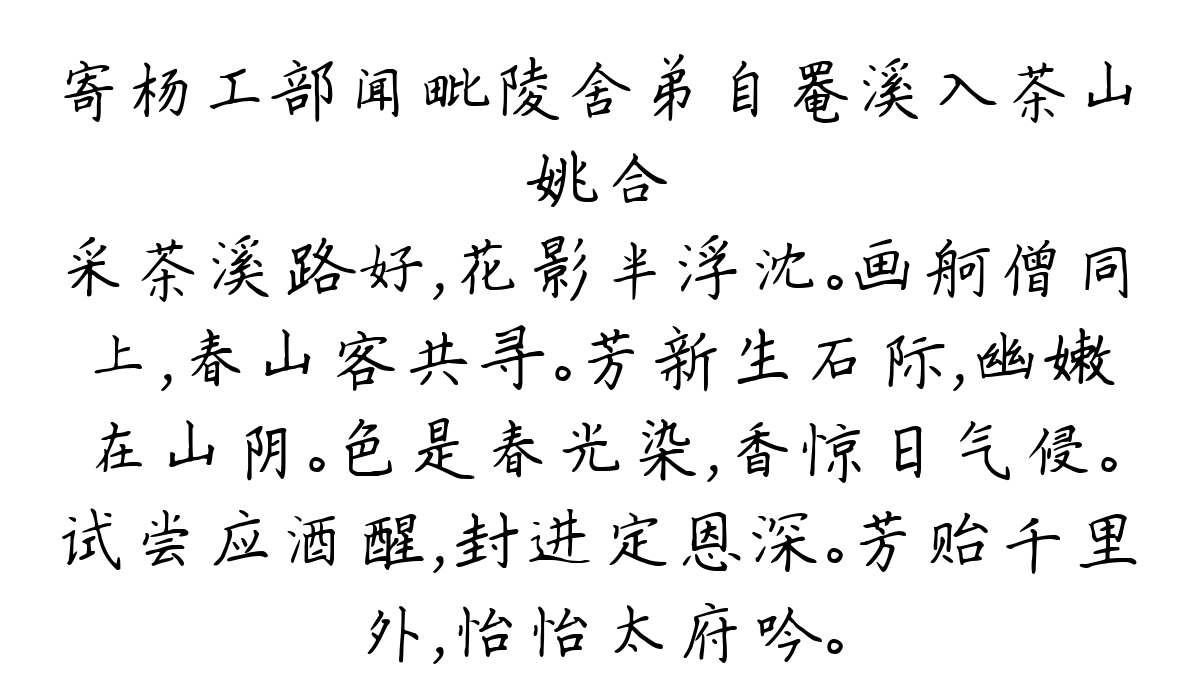 寄杨工部闻毗陵舍弟自罨溪入茶山
姚合
采茶溪路好,花影半浮沈。画舸僧同
上,春山客共寻。芳新生石际,幽嫩
在山阴。色是春光染,香惊日气侵。
试尝应酒醒,封进定恩深。芳贻千里
外,怡怡太府吟。